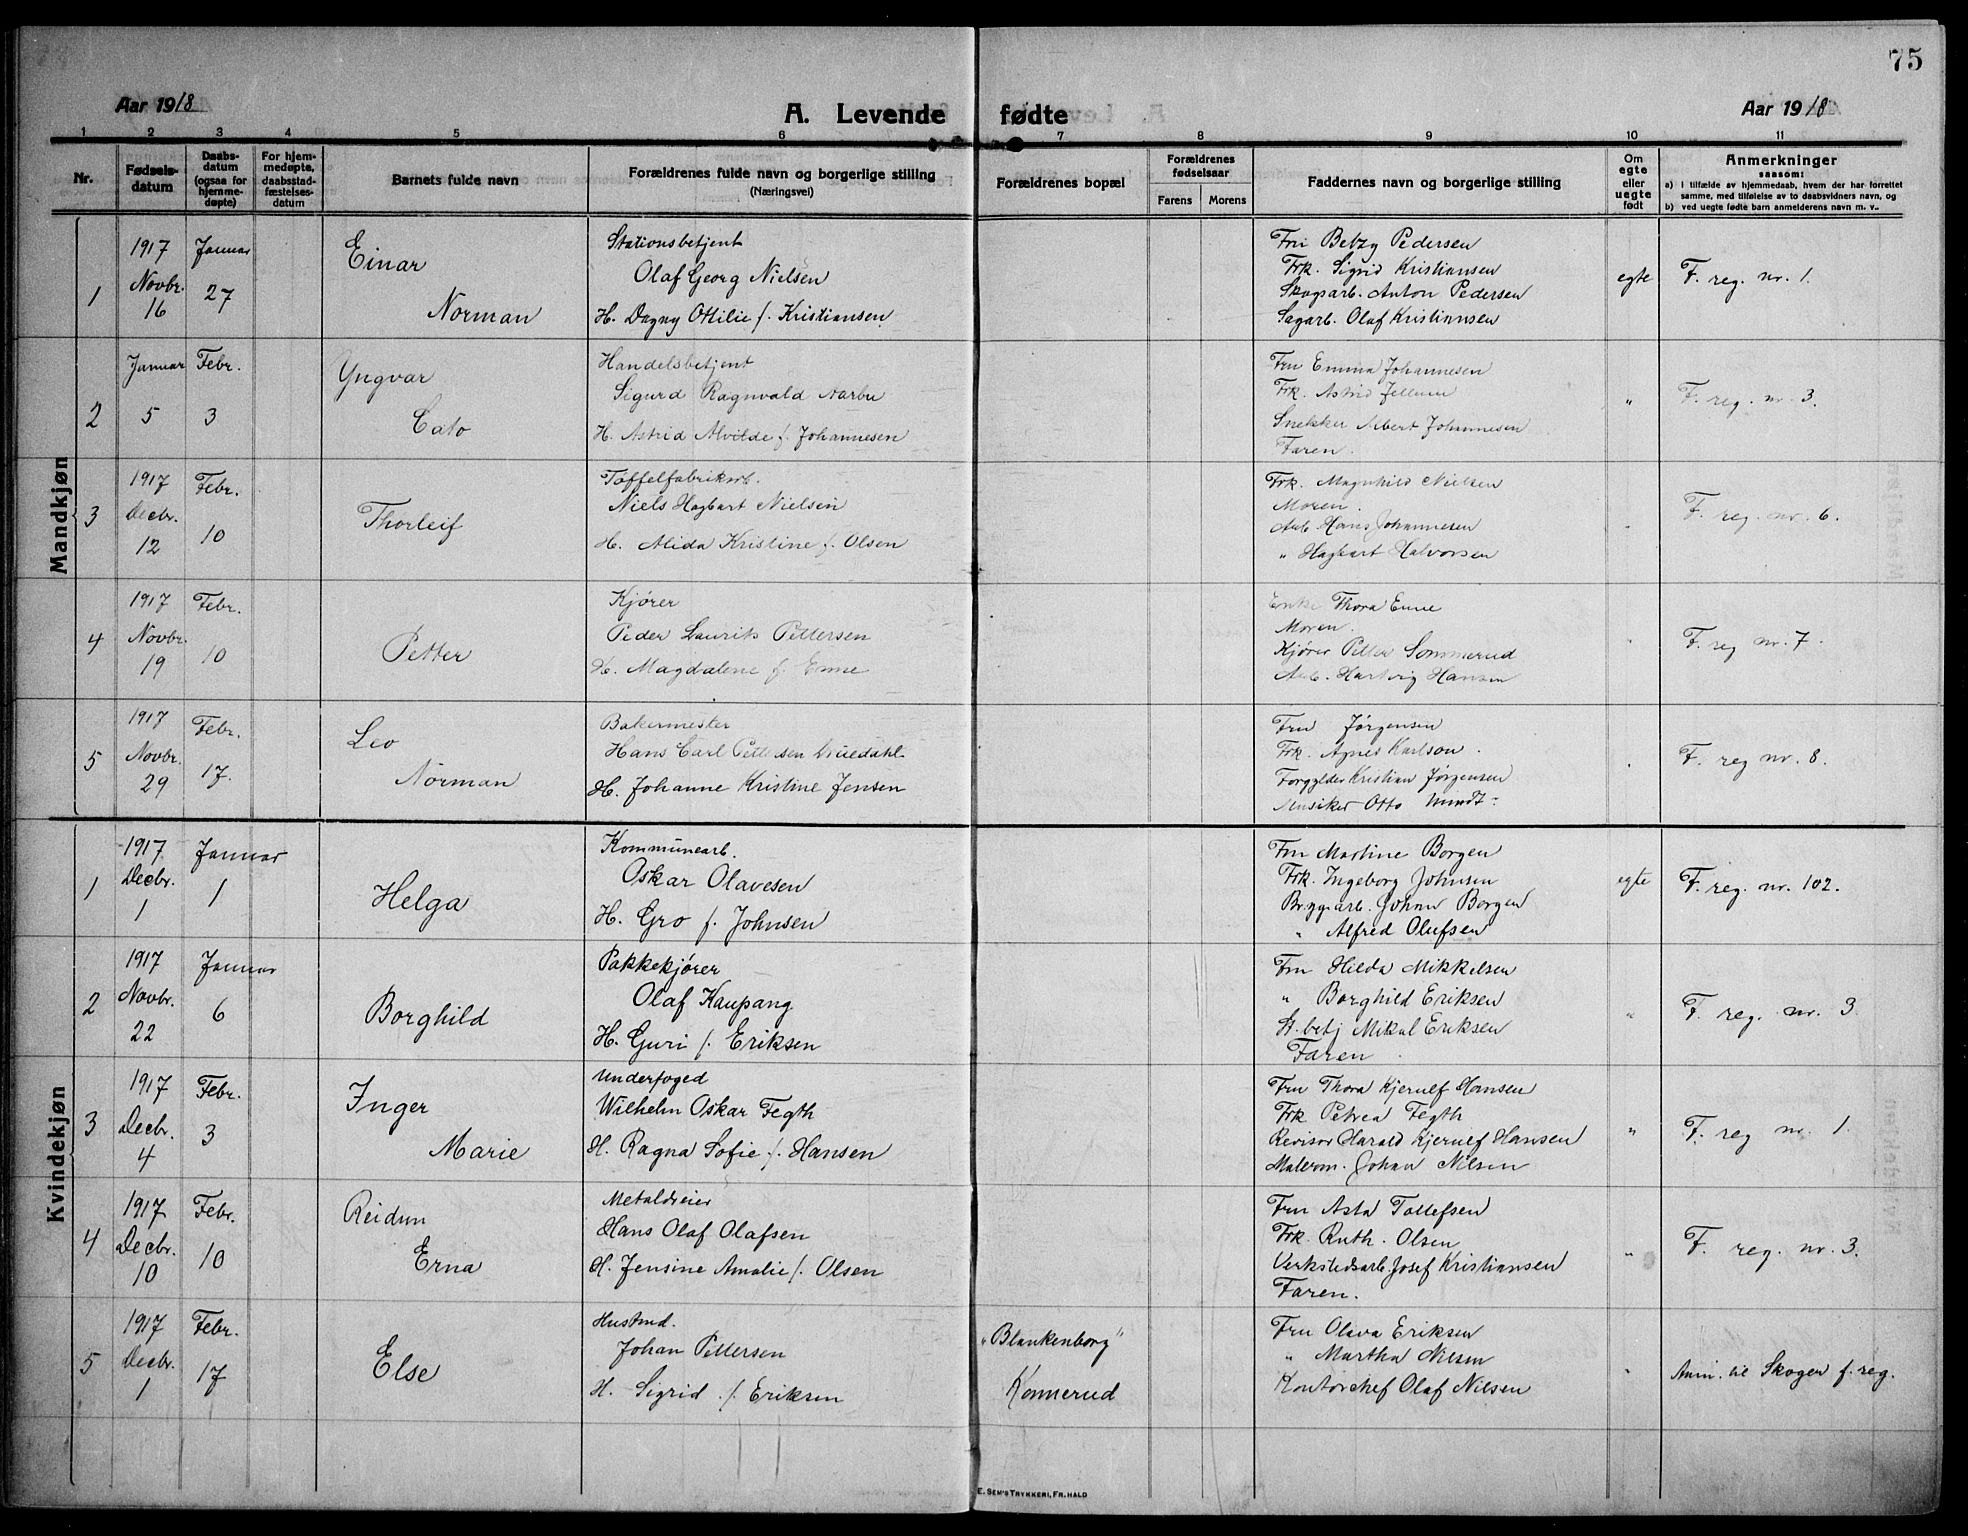 75
Aar 1918
A. Levende fødte
Aar 1918
1 2 3 4 5 6 7 8 9 10 11
Nr.
Fødselsdatum
Daabsdatum (ogsaa for hjemmedøpte)
For hjemmedøpte, daabsstadfæstelsesdatum
Barnets fulde navn
Forældrenes fulde navn og borgerlige stilling
(Næringsvei)
Forældrenes bopæl
Forældrenes fødselsaar
Farens Morens
Faddernes navn og borgerlige stilling
Om egte eller uegte født
Anmerkninger
saasom:
a) i tilfælde av hjemmedaab, hvem der har forrettet samme, med tilføielse av to daabsvidners navn, og
b) ved uegte fødte barn anmelderens navn m. v..
Mandkjøn
1
1917 Novbr. 16
Januar 27
Einar
Norman
Stationsbetjent
Olaf Georg Nielsen
H. Dagny Ottilie f. Kristiansen
Fru Betzy Pedersen
Frk. Sigrid Kristiansen
Skogsarb. Anton Pedersen
Sagarb. Olaf Kristiansen
egte
F. reg. nr. 1.
2
Januar 5
Febr. 3
Yngvar
Cato
Handelsbetjent
Sigurd Ragnvald Aarbu
H. Astrid Alvilde f. Johannesen
Fru Emma Johannesen
Frk. Astrid
Snekker Albert Johannesen
Faren.
"
F. reg. nr. 3.
3
1917 Decbr. 12
Febr. 10
Thorleif
Tøffelfabrikarb.
Niels Hagbart Nielsen
H. Alida Kristine f. Olsen
Frk. Magnhild Nielsen
Moren.
Arb. Hans Johannesen
" Hagbart Halvorsen
F. reg. nr. 6.
4
1917 Novbr. 19
Febr. 10
Petter
Kjører
Peder Laurits Pettersen
H. Magdalene f. Enne
Enke Thora Enne
Moren.
Kjører Petter Sommerud
Arb. Hartvig Hansen
F. reg nr. 7.
5
1917 Novbr. 29
Febr. 17.
Leo
Norman
Bakermester
Hans Carl Pettersen
H. Johanne Kristine Jensen
Fru Jørgensen
Frk. Agnes Karlson.
Forgylder Kristian Jørgensen
Musiker Otto
F. reg nr. 8.
Kvindekjøn
1
1917 Decbr. 1
Januar 1
Helga
Kommunearb.
Oskar Olavesen
H. Gro f. Johnsen
Fru Martine Borgen
Frk. Ingeborg Johnsen
Bryggearb. Johan Borgen
" Alfred Olufsen
egte
F. reg. nr. 102.
2
1917 Novbr. 22
Januar 6
Borghild
Pakkekjører
Olaf Kaupang
H. Guri f. Eriksen
Fru Hilda Mikkelsen
" Borghild Eriksen
St. betj Mikal Eriksen
Faren.
"
F. reg. nr. 3.
3
1917 Decbr. 4
Febr. 3
Inger
Marie
Underfoged
Wilhelm Oskar Fegth
H. Ragna Sofie f. Hansen
Fru Thora Kjerulf Hansen
Frk Petrea Fegth
Revisor Harald Kjerulf Hansen
Malerm. Johan Nilsen
"
F. reg nr. 1.
4
1917 Decbr. 10
Febr. 10
Reidun
Erna
Metaldreier
Hans Olaf Olafsen
H. Jensine Amalie f. Olsen
Fru Asta Tollefsen
Frk. Ruth. Olsen
Verkstedsarb. Josef Kristiansen
Faren.
"
F. reg. nr. 3.
5
1917 Decbr. 1
Febr. 17
Else
Husmd.
Johan Pettersen
H. Sigrid f. Eriksen
"Blankenborg"
Konnerud
Fru Olava Eriksen
" Martha Nilsen
Kontorchef Olaf Nilsen
"
Anm. til Skoger f. reg.
E. Sem's Trykkeri, Fr.hald